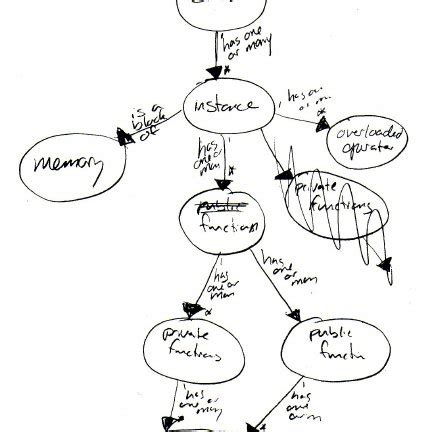 has one
or many
*
instance
is a
block
of
has one
or m
*
memory
overloaded
operator
has
one or
man
*
private
functions
public
function
has
one or
man
*
has
one or
many
private
functions
public
functin
has
one or
many
has
one
or m
*